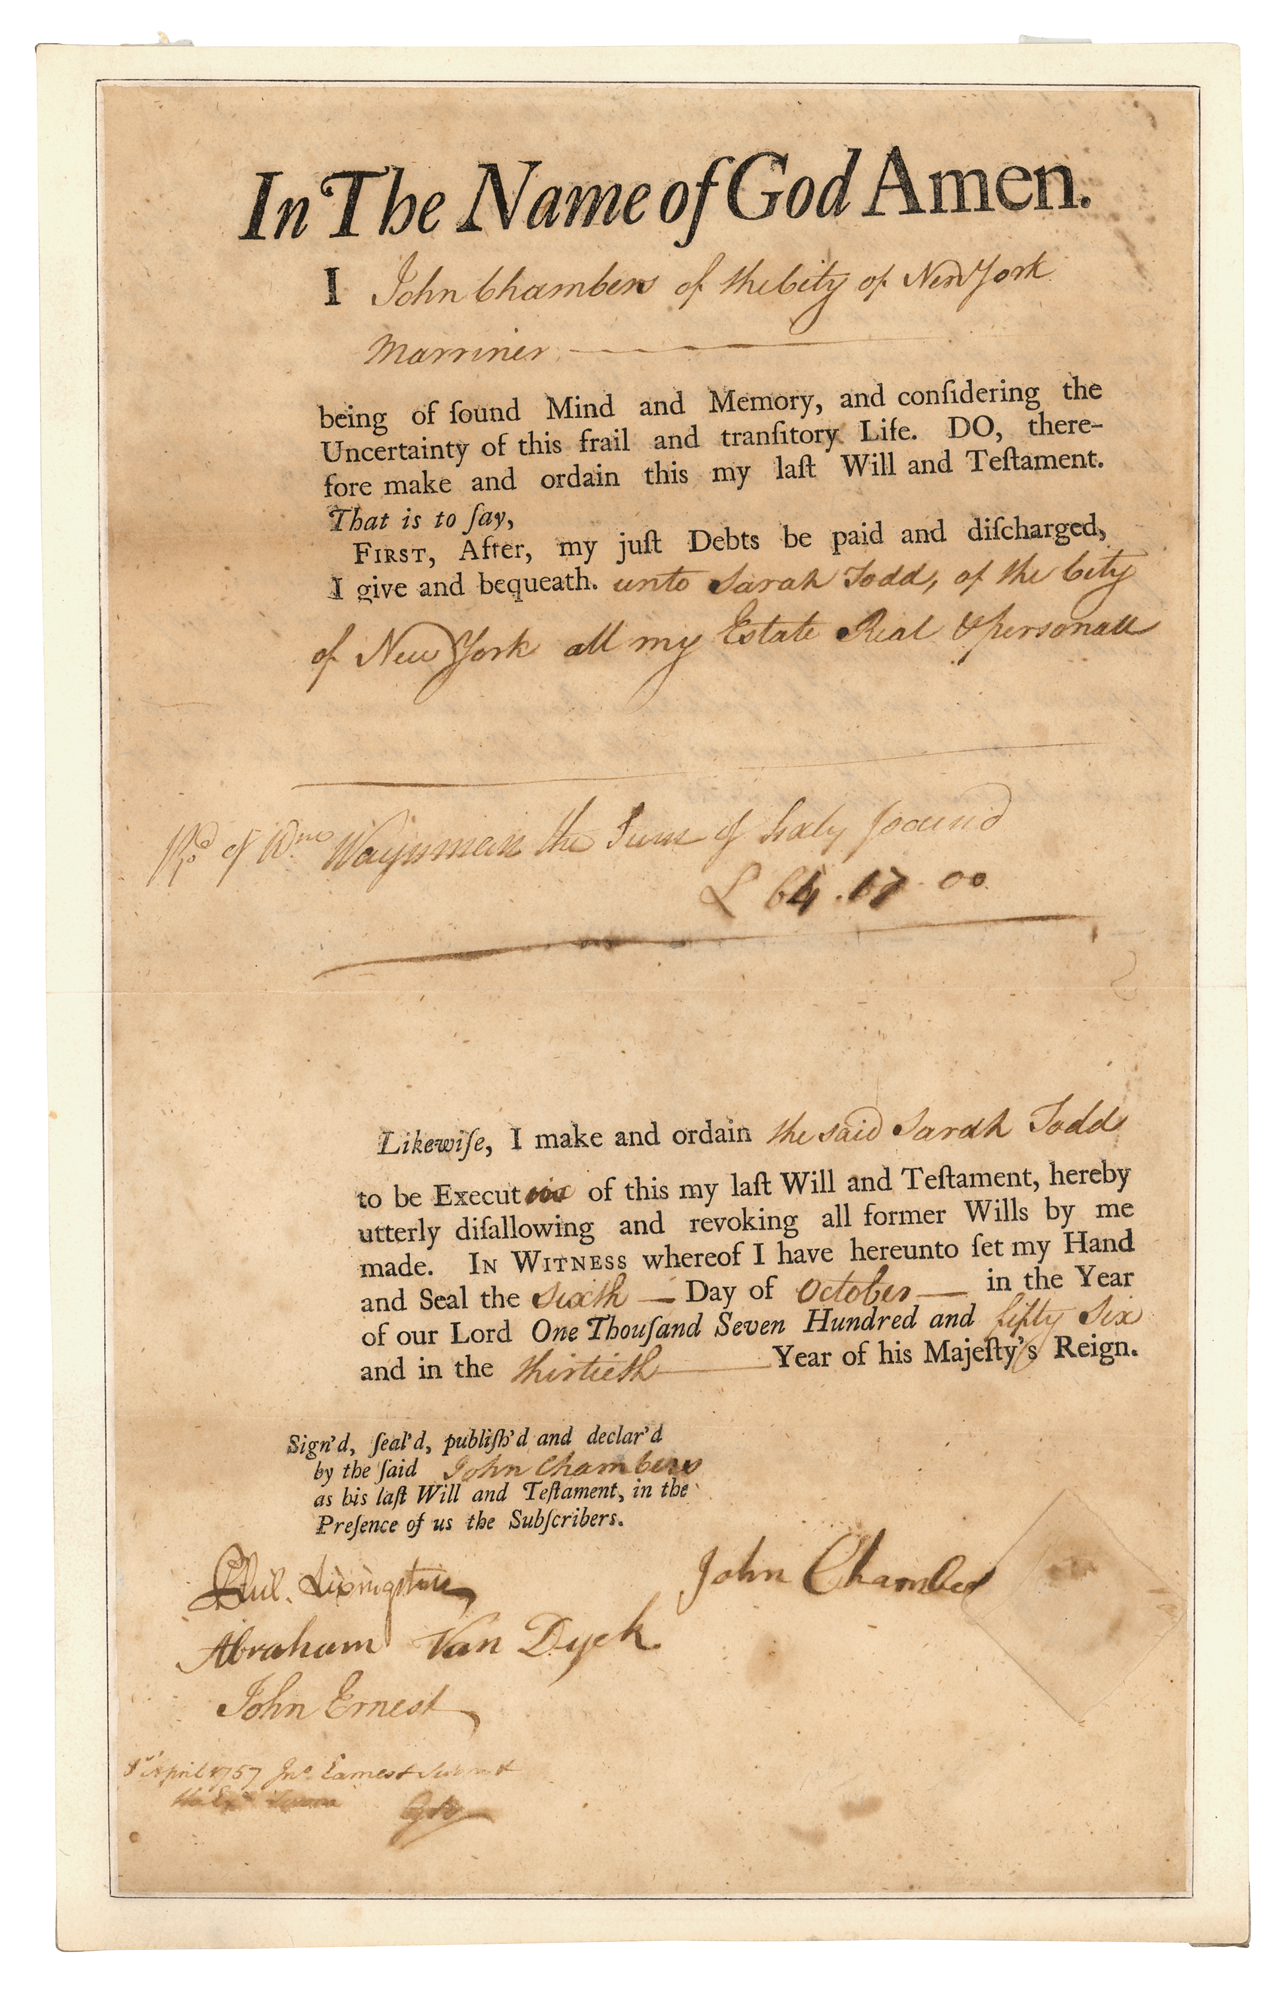 In The Name of God Amen.
I John Chambers of the City of New York
Marriner
being of ſound Mind and Memory, and conſidering the
Uncertainty of this frail and tranſitory Life. DO, there-
fore make and ordain this my laſt Will and Teſtament.
That is to ſay,
FIRST, After, my juſt Debts be paid and diſcharged,
I give and bequeath. unto Sarah Todd, of the City
of New York all my Estate Real & personall
of Waynman the Sum of Sixty pound
£ 64.17.00
Likewiſe, I make and ordain the said Sarah Todd
to be Executrix of this my laſt Will and Teſtament, hereby
utterly diſallowing and revoking all former Wills by me
made. IN WITNESS whereof I have hereunto ſet my Hand
and Seal the sixth Day of October in the Year
of our Lord One Thouſand Seven Hundred and fifty Six
and in the thirtieth Year of his Majeſty's Reign.
Sign'd, ſeal'd, publiſh'd and declar'd
by the ſaid John Chambers
as his laſt Will and Teſtament, in the
Preſence of us the Subſcribers.
Phil. Livingston
John Chambers
Abraham Van Dyck.
John Ernest
April 1757 Jno. Earnest